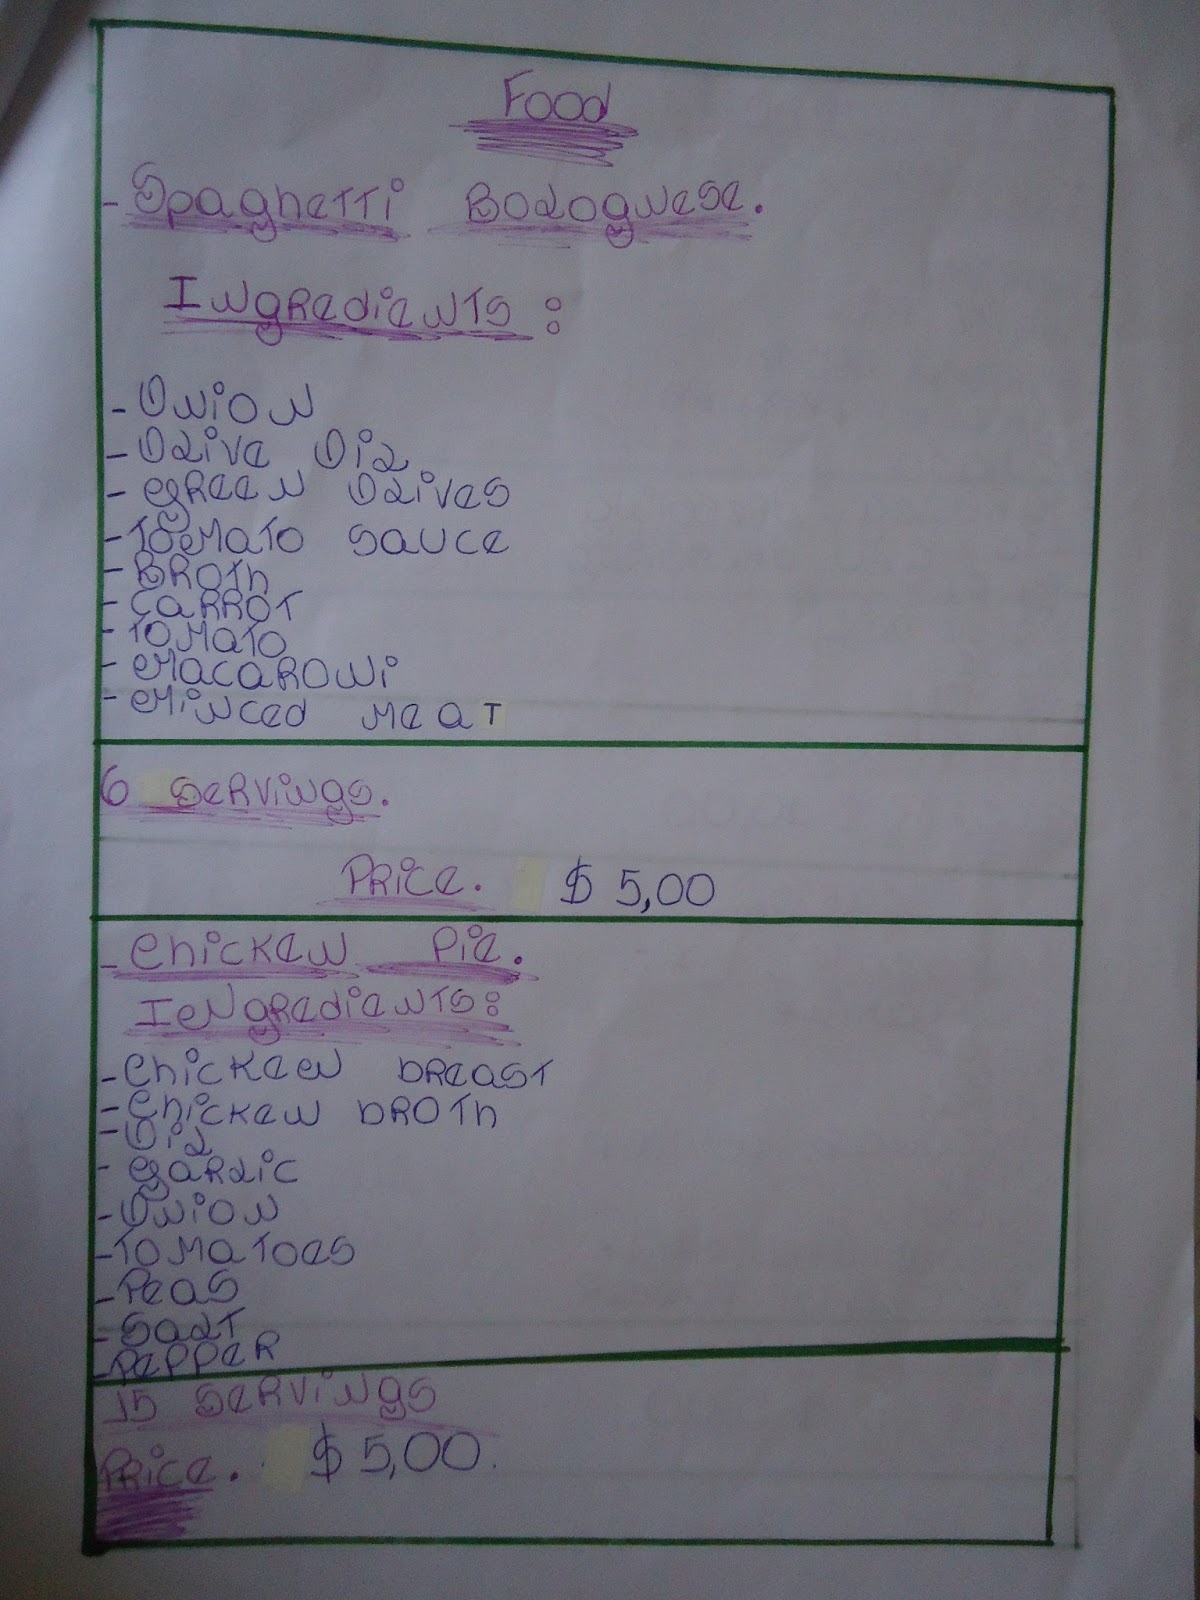 Food
- Spaghetti Bolognese.
Ingredients:
- Onion
- Olive Oil
- Green Olives
- Tomato sauce
- Broth
- Carrot
- Tomato
- Macaroni
- Minced meat
6 servings.
Price. $ 5,00
- Chicken Pie.
Ingredients:
- Chicken breast
- Chicken broth
- Oil
- Garlic
- Onion
- Tomatoes
- Peas
- Salt
- Pepper
15 servings
Price. $ 5,00.